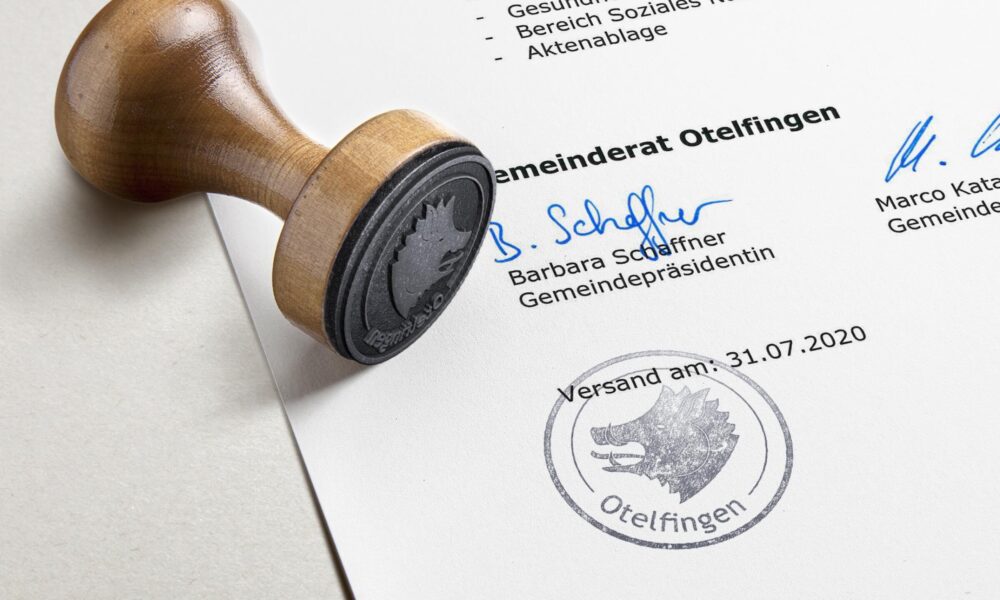 - Gesun
- Bereich Soziales
- Aktenablage
emeinderat Otelfingen
B. Schaffner
Barbara Schaffner
Gemeindepräsidentin
M.
Marco Kata
Gemeinde
Versand am: 31.07.2020
Otelfingen
Otelfingen